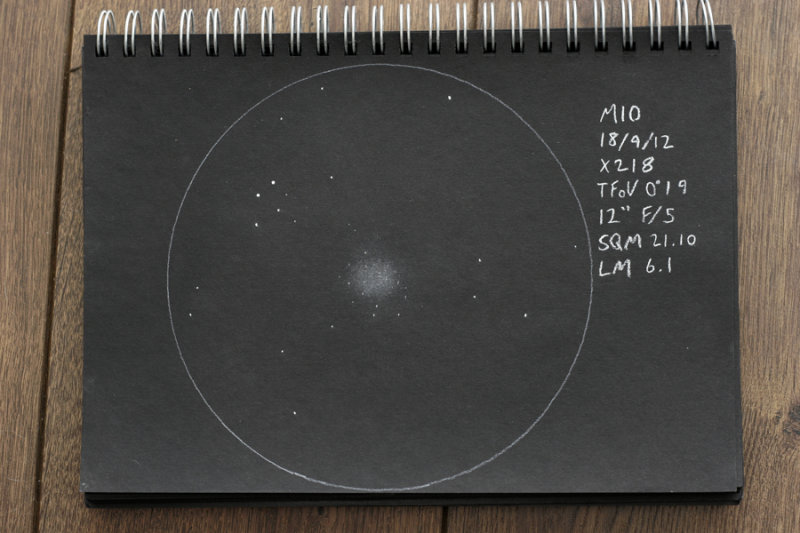 M10
18/9/12
X218
TFoV 0°19
12" F/5
SQM 21.10
LM 6.1